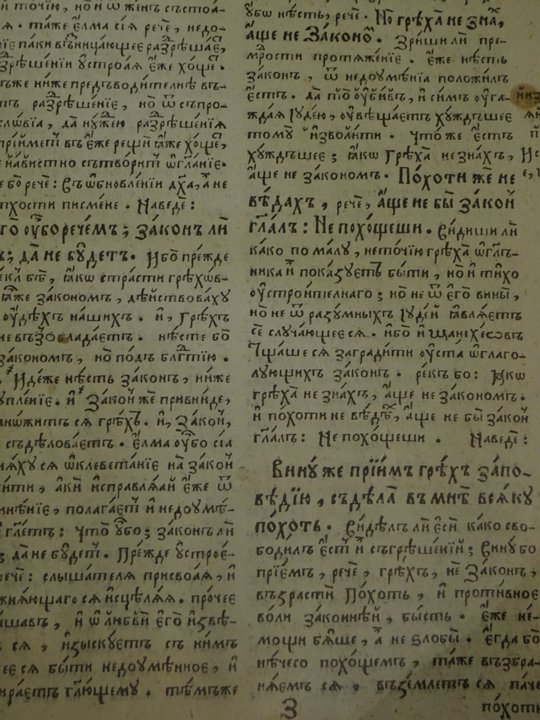 и точїю, но и ѿ женъ състоа-
я. таже є҆лма сїѧ рече, недо-
разрѣшає,
зрѣшенїи устроаѧ є҆же хо́ще.
же ниже предъводителнѣ въ-
разрѣшенїе, но ѿ съпро-
словїа, да нужею разрѣшенїѧ
прїимет въ є҆же рещи ꙗ҆же хо́ще,
извѣстно сътворит ѡ҆гланїе.
е бо рече: Въ ѡ҆бновленїи дх҃а, а҆ не
тхости писмене. Наведе:
го ѹ҆бо речемъ; законъ ли
ъ; да не бѹдетъ. Ибо прежде
екл бѣ, ꙗ҆кѡ страсти грѣхѡв-
ꙗ҆же закономъ, дѣйствоваху
ѹ҆дехъ нашихъ. и, грѣхъ
не въз ѡ҆бладаетъ. нѣсте бо
закономъ, но подъ блг҃тїю.
Идѣже нѣсть законъ, ниже
упленїе. и҆ Законже привниде,
множитсѧ грѣхъ. и҆, Закон,
съдѣловаетъ. є҆лма ѹ҆бо сїа
нѧхусѧ ѡ҆клеветанїе на закон
ити, а҆ки исправлѧѧй є҆же ѿ
мнѣнїе, полагаетъ и҆ недоумѣ-
гл҃етъ: что ѹ҆бо; законъ ли
; да не будетъ. Прежде ѹ҆строє-
рече: слышателѧ присвоаѧ, и҆
жнѧющагосѧ исцѣлѧѧ. прочее
ишавъ, и҆ ѿ любви є҆го и҆звѣ-
сѧ, и҆зыскуетъ съ нимъ
еесѧ быти недоумѣнное, и҆
ираетъ гл҃ющему. тѣмъже
ѹ҆бо нѣсть, рече. Но грѣха не знах,
аще не Законом. Зриши ли пре-
мудрости протѧженїе. є҆же нѣсть
законъ, ѿ недоумѣнїа положилъ
єсть. да сїе ѹ҆бивъ, и҆ симъ ѹ҆га-
ждаѧ Іудею, ѹ҆вѣщаетъ хуждъшее
тому и҆зволити. Что же єсть
хуждъшее; ꙗ҆кѡ грѣха незнахъ,
аще не закономъ. Похоти же не
вѣдахъ, рече, аще не бы закон
гл҃алъ: Не похощеши. Видиши ли
како по малу, неточїю грѣха ѡ҆глъ-
никаи показуетъ быти, но и҆ тихо
ѹ҆строителнаго; но не ѿ є҆го вины,
но не ѿ разумныхъ Іудеи ꙗ҆влѧетъ
се случающеесѧ. ибо и҆
Тщашесѧ заградити ѹ҆ста ѡ҆глаго-
лующихъ законъ. рекъ бо: Ꙗкѡ
грѣха не знахъ, аще не закономъ.
и҆ похоти не вѣдѣ, аще не бы закон
гл҃алъ: Не похощеши. Наведе:
Вину же прїимъ грѣхъ запо-
вѣдїю, съдѣла въ мнѣ всѧку
похоть. Видѣлъ ли єси како сво-
бодилъ єсть и҆ съгрѣшенїй; Вину бо
прїемъ, рече, грѣхъ, не Законъ,
възрасти Похоть, и҆ противное
воли законнѣй, бысть. є҆же не-
мощи бѧше, а҆ не ѕлобы. є҆гда бо
нѣчего похощемъ, таже възбра-
нѧемсѧ, въземлетсѧ паче
похоти
З